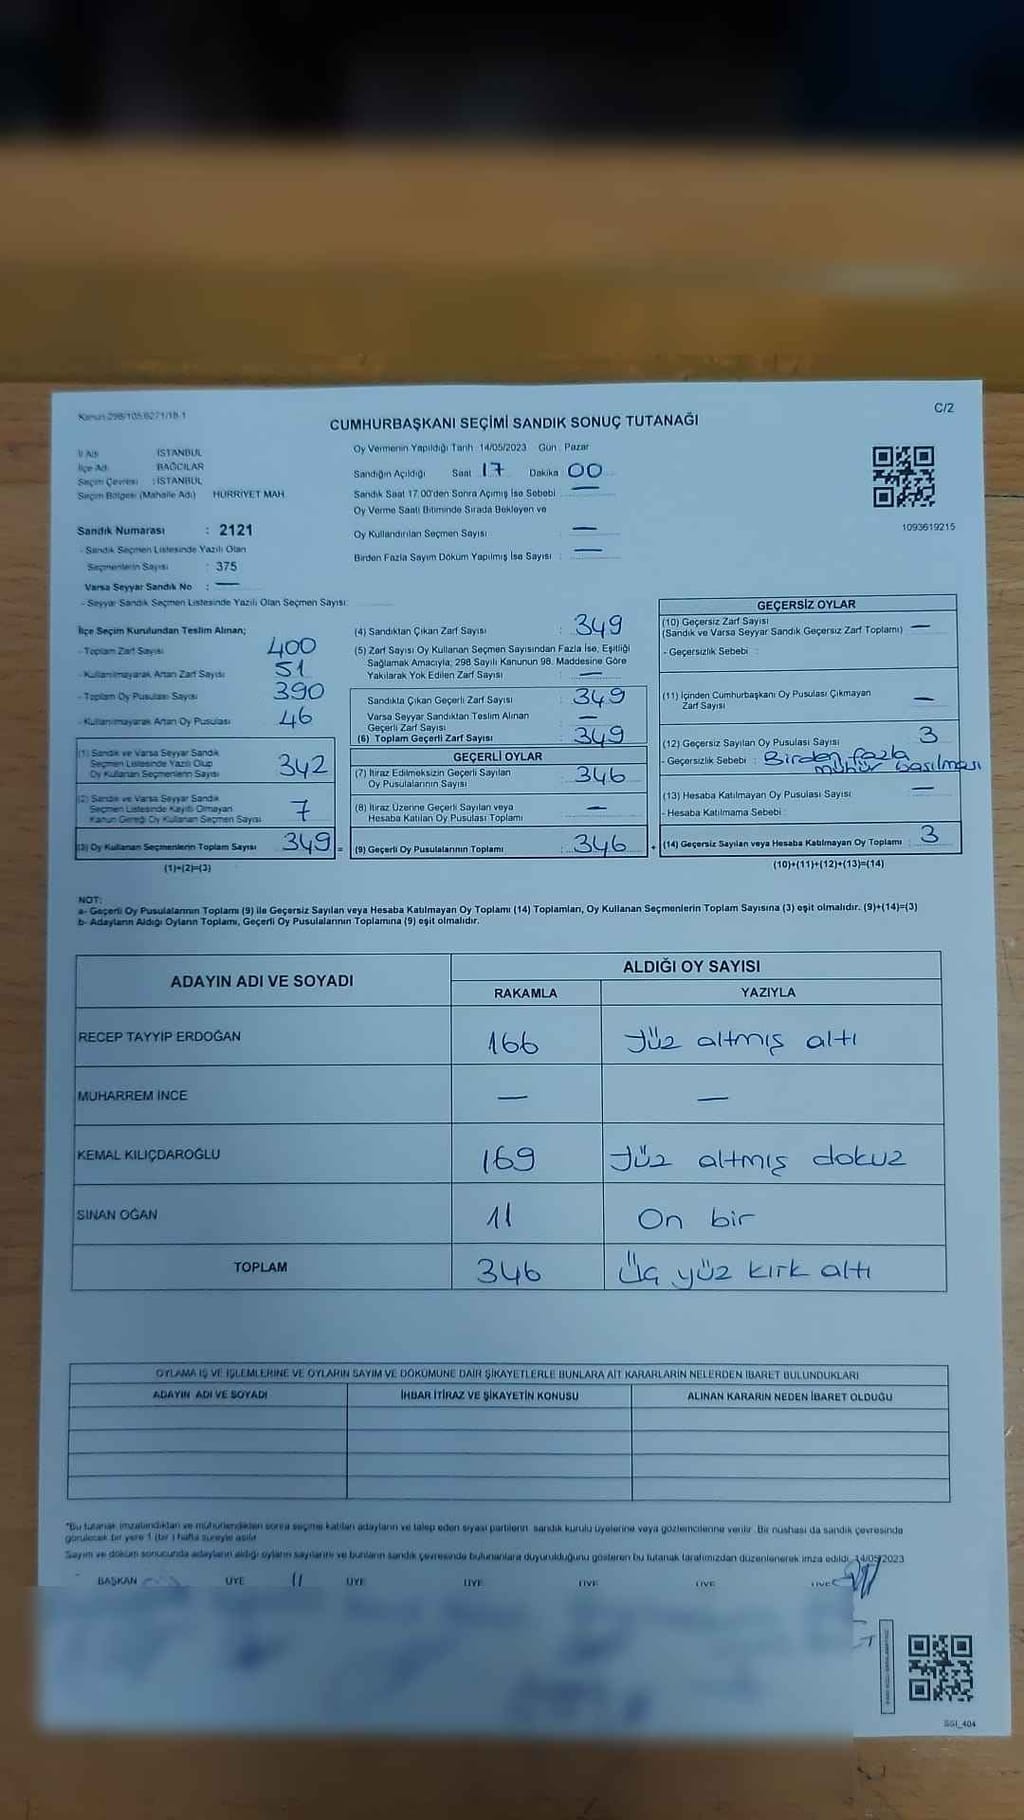 Kanun 298/105.6271/18-1
C/2
CUMHURBAŞKANI SEÇİMİ SANDIK SONUÇ TUTANAĞI
İl Adı : İSTANBUL
İlçe Adı : BAĞCILAR
Seçim Çevresi : İSTANBUL
Seçim Bölgesi (Mahalle Adı) HÜRRİYET MAH.
Sandık Numarası : 2121
- Sandık Seçmen Listesinde Yazılı Olan
Seçmenlerin Sayısı : 375
Varsa Seyyar Sandık No : —
- Seyyar Sandık Seçmen Listesinde Yazılı Olan Seçmen Sayısı:
Oy Vermenin Yapıldığı Tarih 14/05/2023 Gün : Pazar
Sandığın Açıldığı Saat 17 Dakika 00
Sandık Saat 17.00'den Sonra Açımış İse Sebebi —
Oy Verme Saati Bitiminde Sırada Bekleyen ve
Oy Kullandırılan Seçmen Sayısı —
Birden Fazla Sayım Döküm Yapılmış İse Sayısı : —
1093619215
İlçe Seçim Kurulundan Teslim Alınan;
- Toplam Zarf Sayısı 400
- Kullanılmayarak Artan Zarf Sayısı 51
- Toplam Oy Pusulası Sayısı 390
- Kullanılmayarak Artan Oy Pusulası 46
(1) Sandık ve Varsa Seyyar Sandık
Seçmen Listesinde Yazılı Olup
Oy Kullanan Seçmenlerin Sayısı 342
(2) Sandık ve Varsa Seyyar Sandık
Seçmen Listesinde Kayıtlı Olmayan
Kanun Gereği Oy Kullanan Seçmen Sayısı 7
(3) Oy Kullanan Seçmenlerin Toplam Sayısı 349 =
(1)+(2)=(3)
(4) Sandıktan Çıkan Zarf Sayısı : 349
(5) Zarf Sayısı Oy Kullanan Seçmen Sayısından Fazla İse, Eşitliği
Sağlamak Amacıyla, 298 Sayılı Kanunun 98. Maddesine Göre
Yakılarak Yok Edilen Zarf Sayısı : —
Sandıkta Çıkan Geçerli Zarf Sayısı : 349
Varsa Seyyar Sandıktan Teslim Alınan
Geçerli Zarf Sayısı : —
(6) Toplam Geçerli Zarf Sayısı : 349
GEÇERLİ OYLAR
(7) İtiraz Edilmeksizin Geçerli Sayılan
Oy Pusulalarının Sayısı : 346
(8) İtiraz Üzerine Geçerli Sayılan veya
Hesaba Katılan Oy Pusulası Toplamı : —
(9) Geçerli Oy Pusulalarının Toplamı : 346 +
GEÇERSİZ OYLAR
(10) Geçersiz Zarf Sayısı
(Sandık ve Varsa Seyyar Sandık Geçersiz Zarf Toplamı) : —
- Geçersizlik Sebebi :
(11) İçinden Cumhurbaşkanı Oy Pusulası Çıkmayan
Zarf Sayısı —
(12) Geçersiz Sayılan Oy Pusulası Sayısı : 3
- Geçersizlik Sebebi : Birden fazla
mühür basılması
(13) Hesaba Katılmayan Oy Pusulası Sayısı : —
- Hesaba Katılmama Sebebi :
(14) Geçersiz Sayılan veya Hesaba Katılmayan Oy Toplamı : 3
(10)+(11)+(12)+(13)=(14)
NOT:
a- Geçerli Oy Pusulalarının Toplamı (9) ile Geçersiz Sayılan veya Hesaba Katılmayan Oy Toplamı (14) Toplamları, Oy Kullanan Seçmenlerin Toplam Sayısına (3) eşit olmalıdır. (9)+(14)=(3)
b- Adayların Aldığı Oyların Toplamı, Geçerli Oy Pusulalarının Toplamına (9) eşit olmalıdır.
ADAYIN ADI VE SOYADI ALDIĞI OY SAYISI
RAKAMLA YAZIYLA
RECEP TAYYİP ERDOĞAN 166 Yüz altmış altı
MUHARREM İNCE — —
KEMAL KILIÇDAROĞLU 169 Yüz altmış dokuz
SİNAN OĞAN 11 On bir
TOPLAM 346 Üç yüz kırk altı
OYLAMA İŞ VE İŞLEMLERİNE VE OYLARIN SAYIM VE DÖKÜMÜNE DAİR ŞİKAYETLERLE BUNLARA AİT KARARLARIN NELERDEN İBARET BULUNDUKLARI
ADAYIN ADI VE SOYADI İHBAR İTİRAZ VE ŞİKAYETİN KONUSU ALINAN KARARIN NEDEN İBARET OLDUĞU
*Bu tutanak imzalandıktan ve mühürlendikten sonra seçime katılan adayların ve talep eden siyasi partilerin sandık kurulu üyelerine veya gözlemcilerine verilir. Bir nüshası da sandık çevresinde
görülecek bir yere 1 (bir) hafta süreyle asılır.
Sayım ve döküm sonucunda adayların aldığı oyların sayılarını ve bunların sandık çevresinde bulunanlara duyurulduğunu gösteren bu tutanak tarafımızdan düzenlenerek imza edildi. 14/05/2023
BAŞKAN ÜYE ÜYE ÜYE ÜYE ÜYE ÜYE
SSI_404